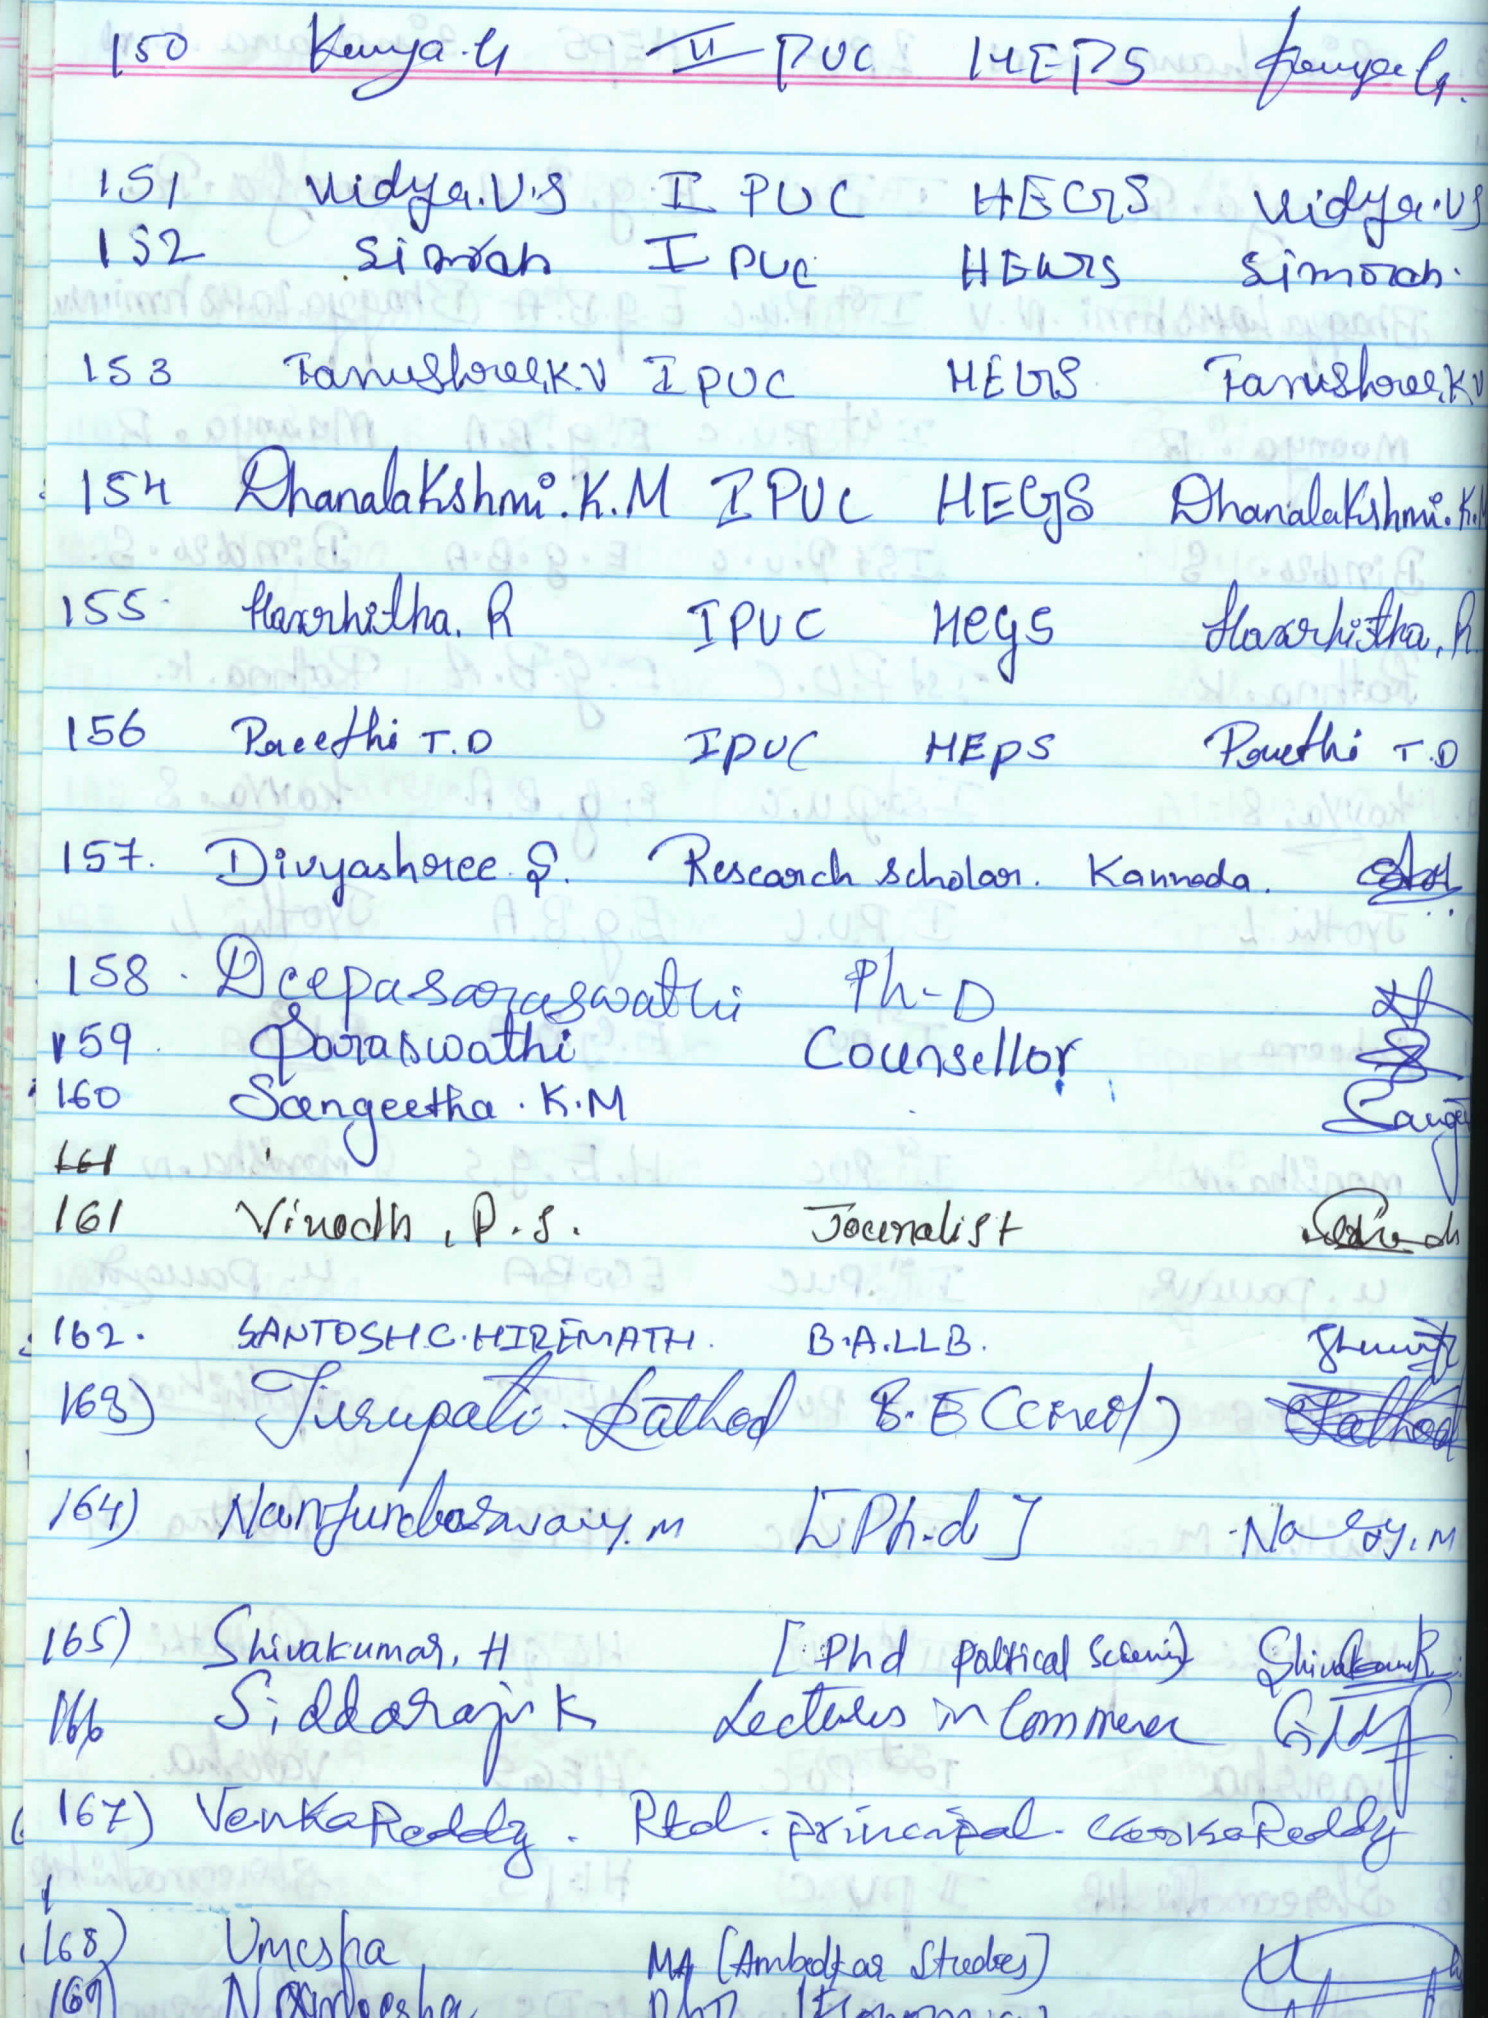 150 Kavya.G II PUC HEPS Kavya G.
151 Vidya.V.S I PUC HEGS Vidya.VS
152 Simran I PUC HEGS Simran.
153 Tanushree,K.V I PUC HEGS Tanushree,KV
154 Dhanalakshmi.K.M I PUC HEGS Dhanalakshmi.K.M
155 Harshitha. R I PUC HEGS Harshitha, R
156 Preethi T.D I PUC HEPS Preethi T.D
157. Divyashree.S. Research scholar. Kannada.
158. Deepasaraswathi Ph-D
159. Saraswathi Counsellor
160 Sangeetha.K.M Sange
161
161 Vinodh, P.S. Journalist
162. SANTOSH.C.HIREMATH. B.A.LLB.
163) Tirupati.Rathod B.E (Civil) Rathod
164) Nanjundaswamy.M [Ph.d] Na y.M
165) Shivakumar, H [Phd political Science] Shivakumar
166 Siddaraju K Lecturer in Commerce
167) VenkaReddy. Rtd. principal. VenkaReddy
168) Umesha MA [Ambedkar Studies]
169)